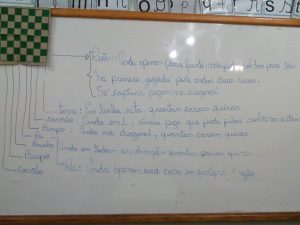 Peão: Anda apenas para frente não pode voltar para trás
Na primeira jogada pode andar duas casas.
Só captura peças na diagonal
torre: Em linha reta quantas casas quiser.
cavalo: Anda em L, única peça que pode pular sobre as outras
Bispo: Anda na diagonal, quantas casas quiser
Rei
Rainha: Anda em todas as direções quantas casas quiser
Bispo
Cavalo
Rei: Anda apenas uma casa em qualquer direção